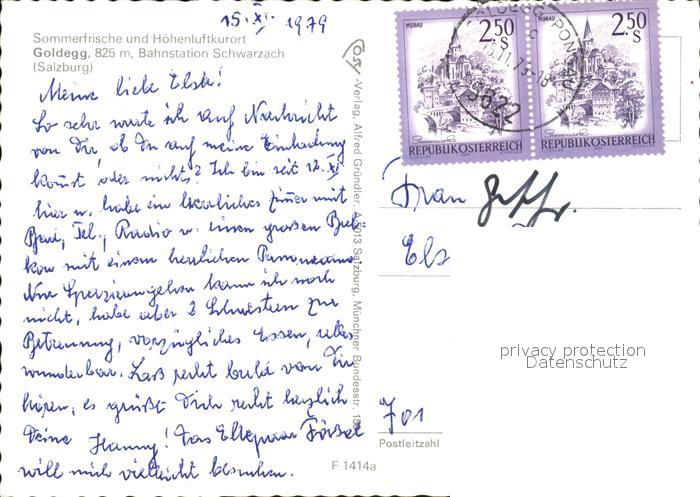 15. XI. 1979
Sommerfrische und Höhenluftkurort
Goldegg, 825 m, Bahnstation Schwarzach
(Salzburg)
Meine liebe Elsk!
So sehr warte ich auf Nachricht
von Dir, ob Du auf meine Einladung
kommst oder nicht? Ich bin seit 12. XI.
hier u. habe ein herrliches Zimmer mit
Tel., Radio u. einen großen Bal-
kon mit einem herrlichen Panorama.
Nur Spazierengehen kann ich noch
nicht, habe aber 2 Schwestern zur
Betreuung, vorzügliches Essen, alles
wunderbar. Laß recht bald von Dir
hören, es grüßt Dich recht herzlich
Deine Hanny! Das Ehepaar
will mich vielleicht besuchen.
-Verlag, Alfred Gründler, A-5013 Salzburg, Münchner Bundesstr.
F 1414a
MURAU
2.50
S
REPUBLIK ÖSTERREICH
MURAU
2.50
S
REPUBLIK ÖSTERREICH
5622
Frau
Els
privacy protection
Datenschutz
Postleitzahl